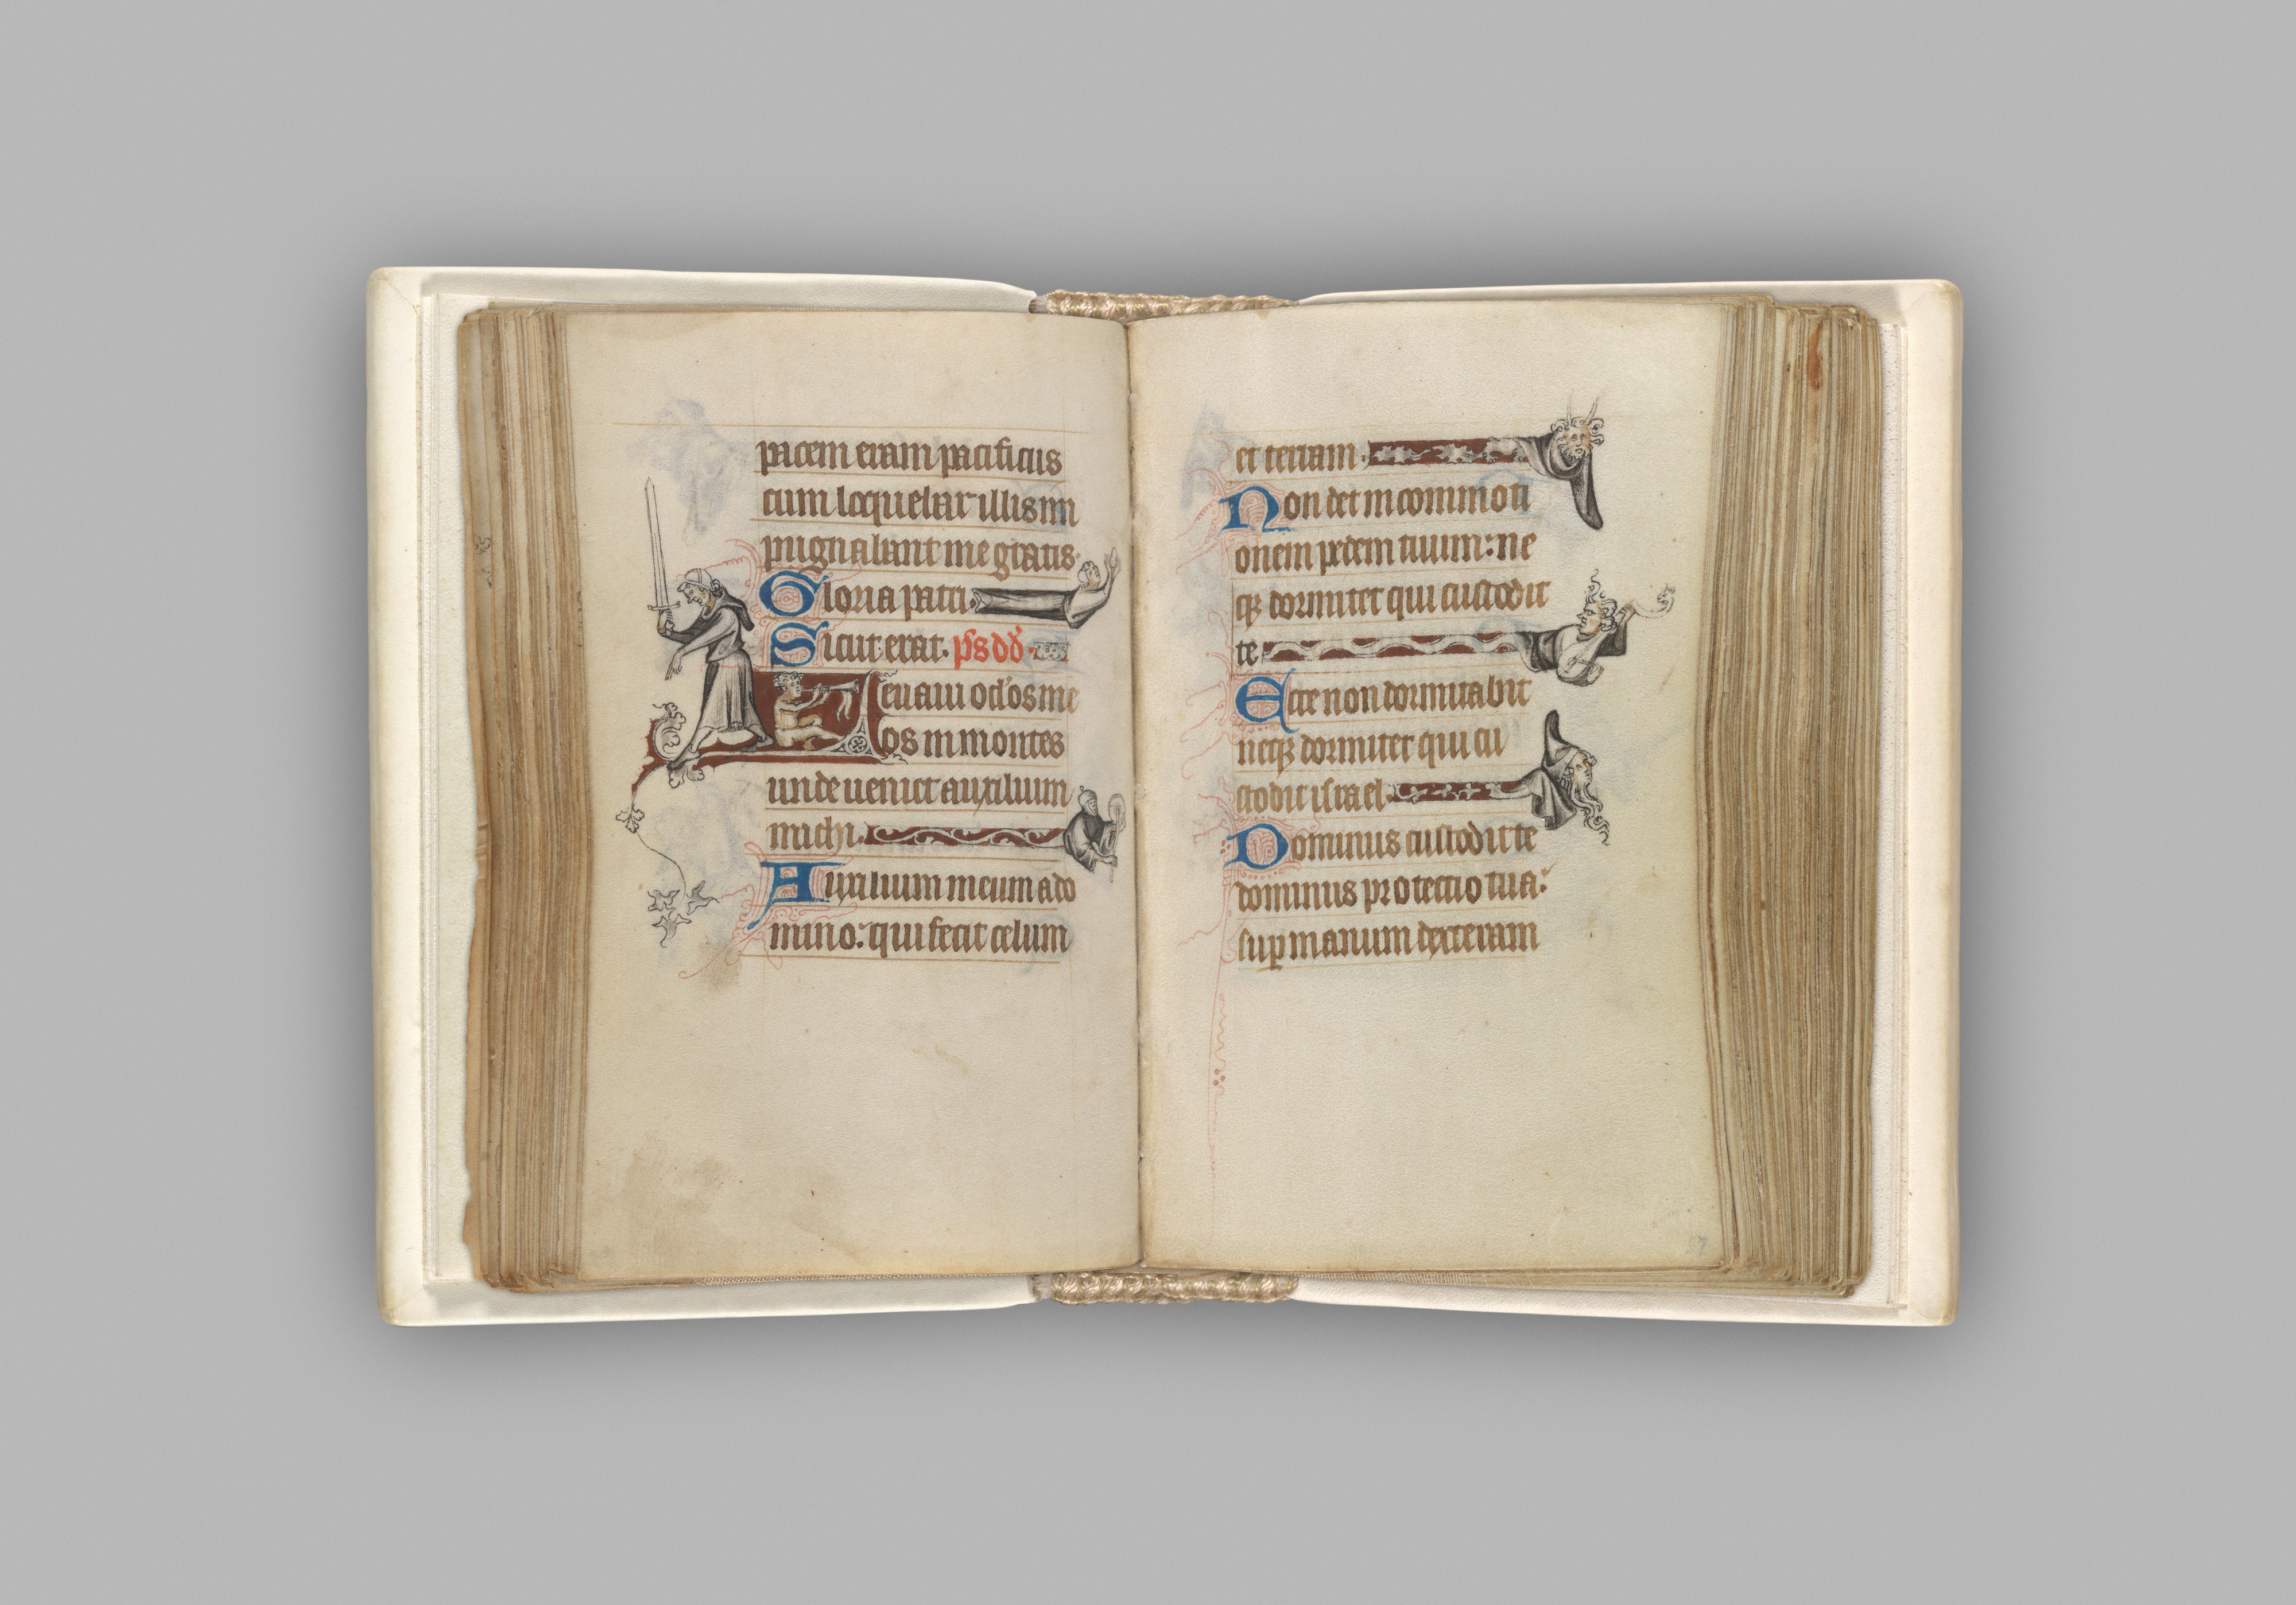 pacem eram pacificus
cum loquebar illis im
pugnabant me gratis.
Gloria patri.
Sicut erat. ps dd.
Leuaui oclos me
os in montes
unde ueniet auxilium
michi.
Auxilium meum a do
mino: qui fecit celum
et terram.
Non det in commoti
onem pedem tuum: ne
qȝ dormitet qui custodit
te
Ecce non dormitabit
neqȝ dormiet qui cu
stodit israel.
Dominus custodit te
dominus protectio tua:
sup manum dexteram